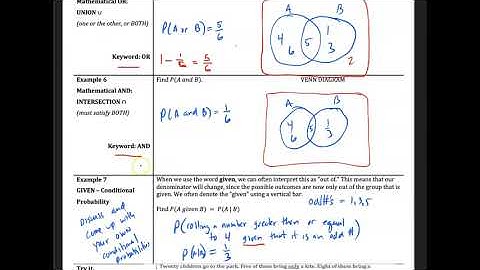 Mathematical OR:
UNION ∪
(one or the other, or BOTH)
Keyword: OR
P(A or B) = 5/6
1 - 1/6 = 5/6
A B
4 6 5 1 3 2
Example 6
Mathematical AND:
INTERSECTION ∩
(must satisfy BOTH)
Keyword: AND
Find P(A and B).
P(A and B) = 1/6
VENN DIAGRAM
A B
4 6 5 1 3
Example 7
GIVEN – Conditional
Probability
Discuss and
come up with
your own
conditional
probabilities
When we use the word given, we can often interpret this as "out of." This means that our
denominator will change, since the possible outcomes are now only out of the group that is
given. We often denote the "given" using a vertical bar.
odd #'s = 1,3,5
Find P(A given B) = P(A | B)
P(rolling a number greater than or equal
to 4 given that it is an odd #)
P(A|B) = 1/3
Try it.
Twenty children go to the park. Five of these bring only a kite. Eight of these bring a